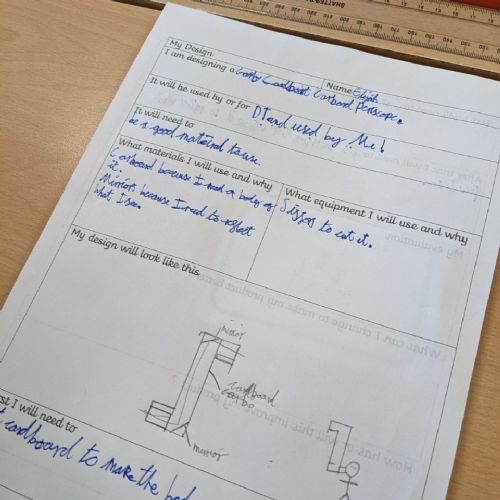 My Design
Name Elijah
I am designing a Cardboard Periscope.
It will be used by or for DT and used by Me!
It will need to
be a good material to use.
What materials I will use and why
Carboard because I need a body of
it.
Mirrors because I need to reflect
what I see.
What equipment I will use and why
Sissors to cut it.
My design will look like this
mirror
Cardboard
mirror
I will need to
cardboard to make the
My evaluation
What can I change to make my product better
How has
will this improve my product?
SHATTER